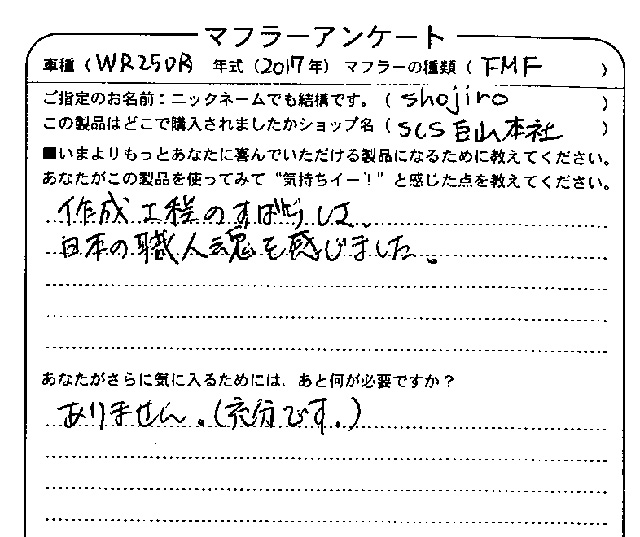 マフラーアンケート
車種(WR250R 年式(2017年) マフラーの種類(FMF)
ご指定のお名前:ニックネームでも結構です。(shojiro)
この製品はどこで購入されましたかショップ名(SCS白山本社)
■いまよりもっとあなたに喜んでいただける製品になるために教えてください。
あなたがこの製品を使ってみて“気持ちイー!”と感じた点を教えてください。
作成工程のすばらしさ、
日本の職人魂を感じました。
あなたがさらに気に入るためには、あと何が必要ですか?
ありません。(充分です。)